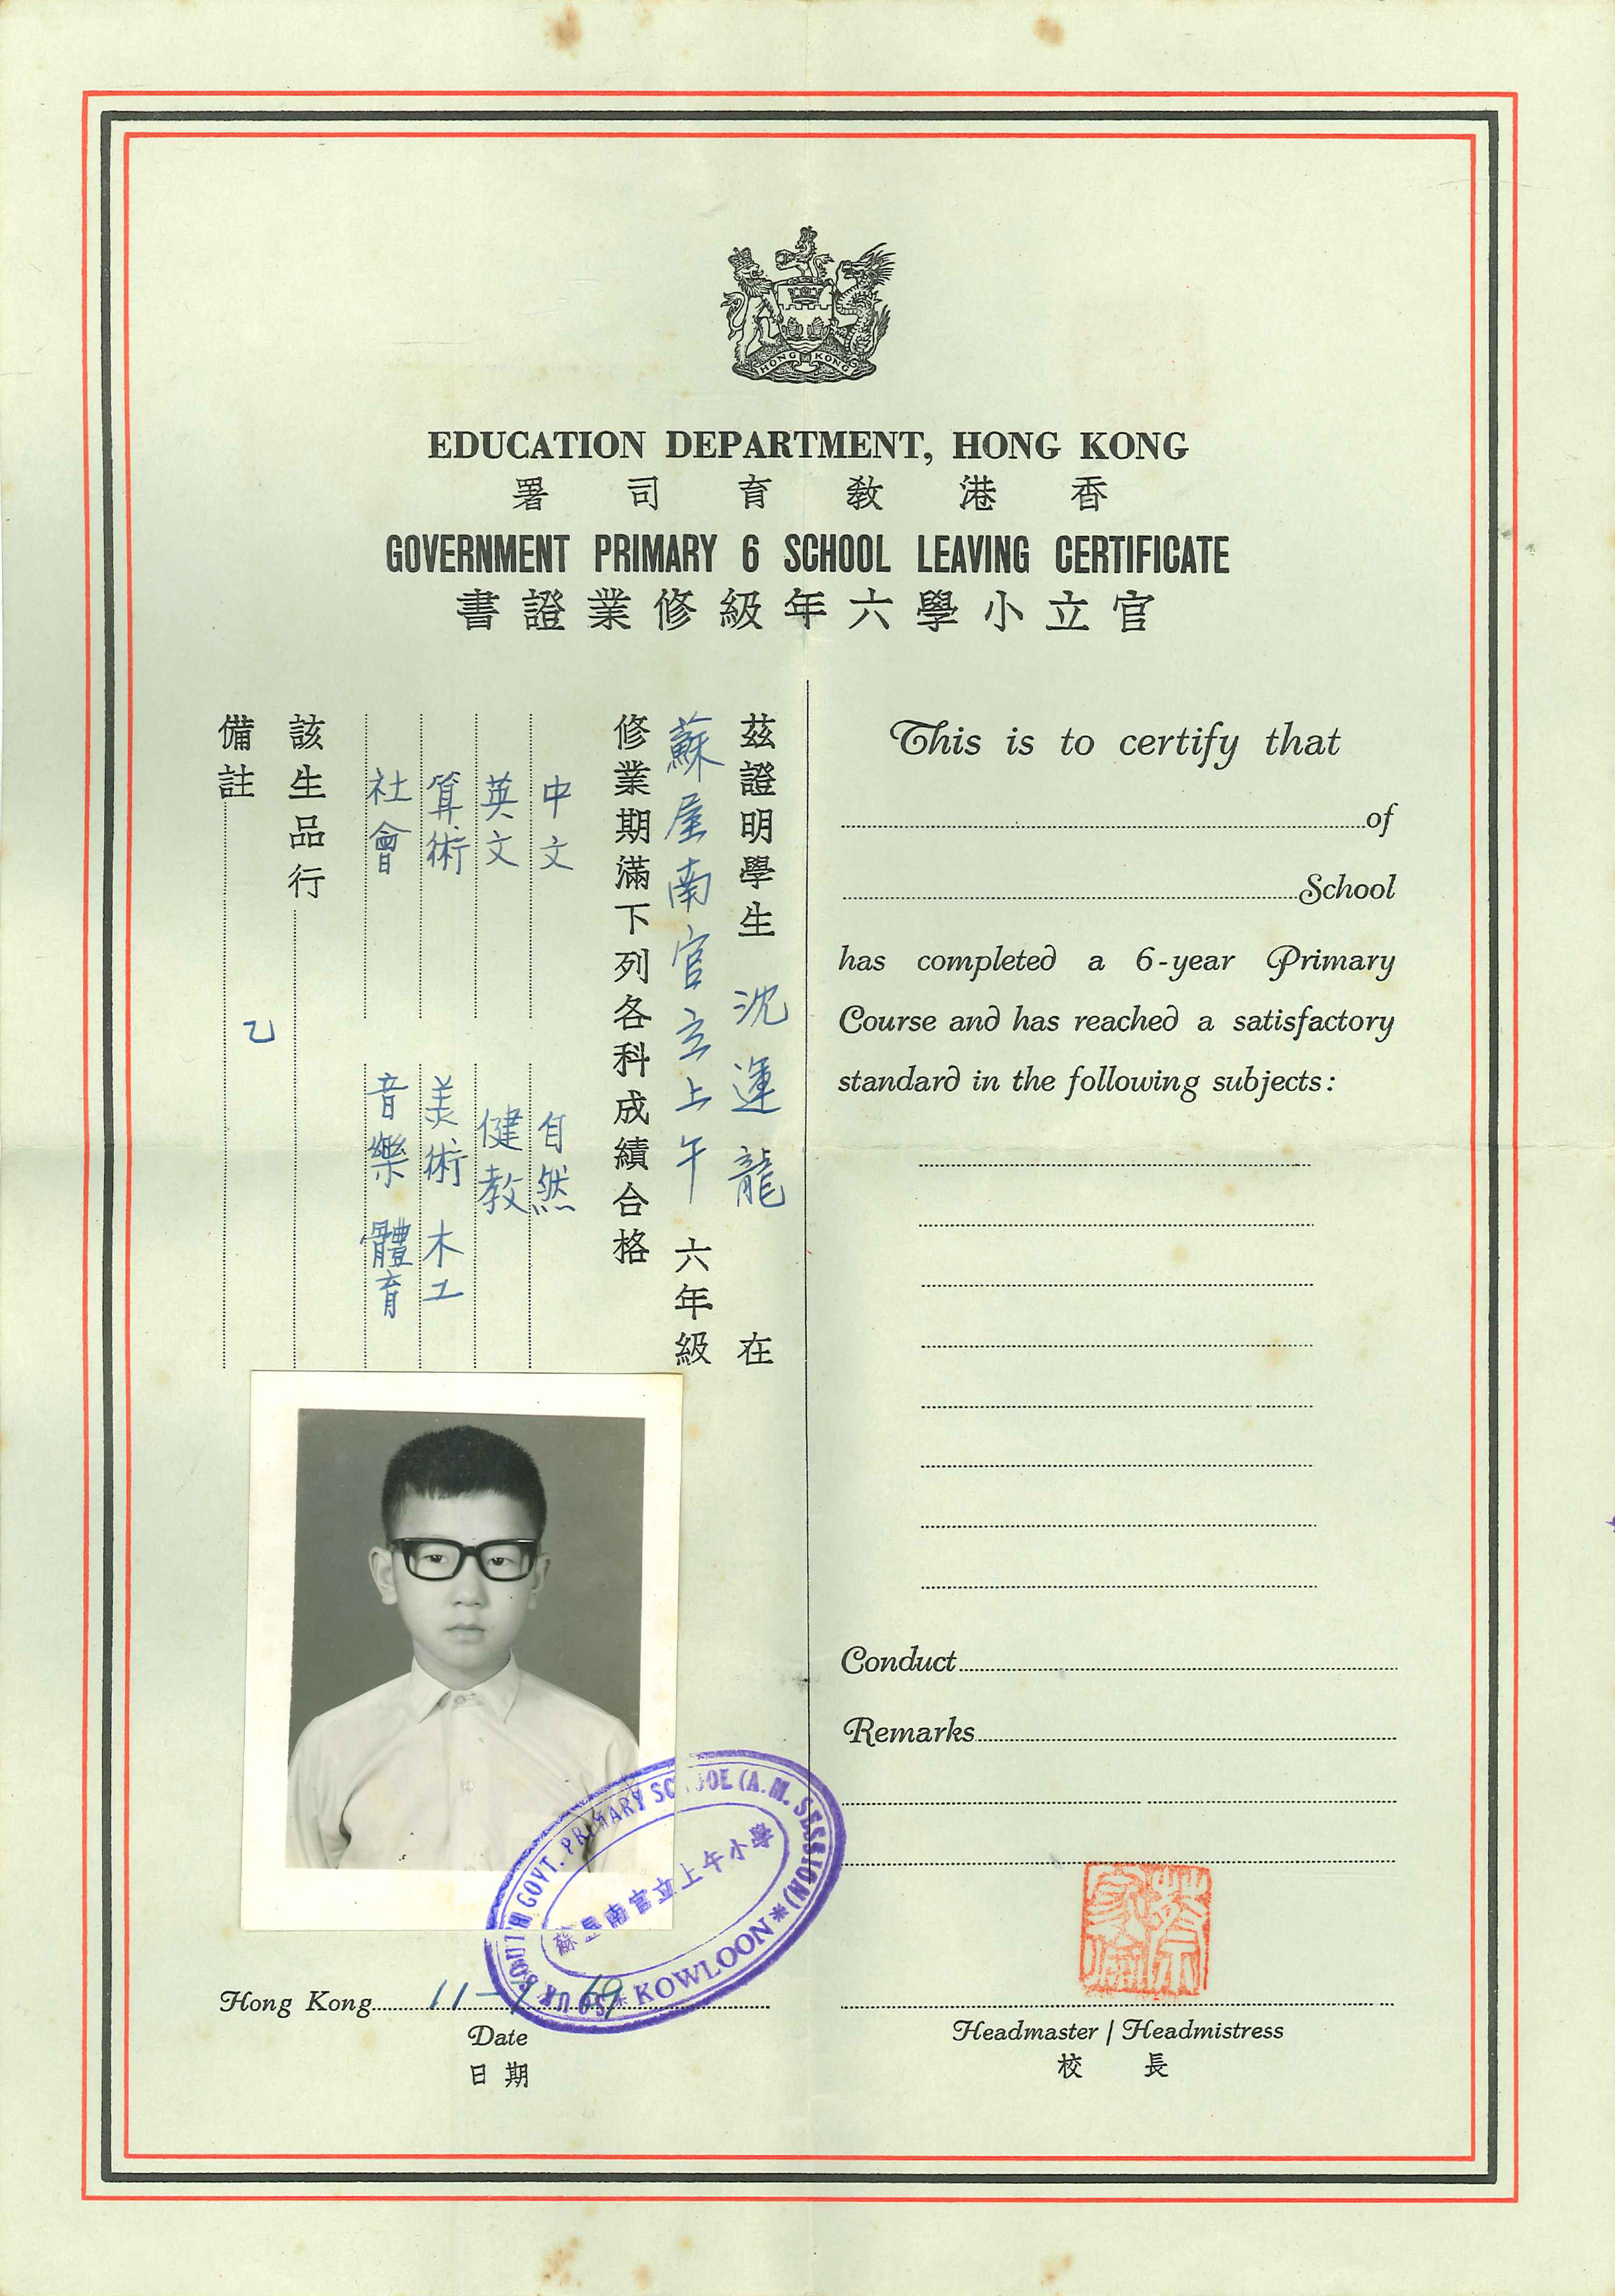 HONG KONG
EDUCATION DEPARTMENT, HONG KONG
署司育教港香
GOVERNMENT PRIMARY 6 SCHOOL LEAVING CERTIFICATE
書證業修級年六學小立官
茲證明學生 沈運龍 在
蘇屋南官立上午 六年級
修業期滿下列各科成績合格
中文 自然
英文 健教
算術 美術 木工
社會 音樂 體育
該生品行 乙
備註
This is to certify that
of
School
has completed a 6-year Primary
Course and has reached a satisfactory
standard in the following subjects:
Conduct
Remarks
SO UK SOUTH GOVT. PRIMARY SCHOOL (A.M. SESSION)
蘇屋南官立上午小學
* KOWLOON *
Hong Kong 11-7-69
Date
日期
Headmaster / Headmistress
校長